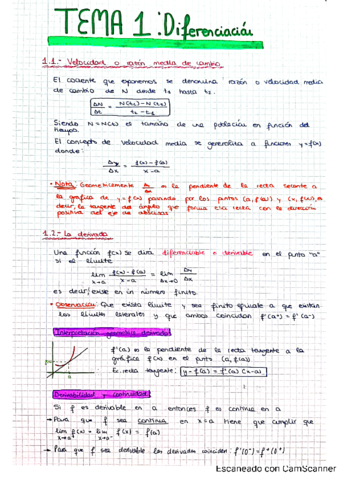 TEMA 1: Diferenciación
1.1.- Velocidad o razón media de cambio
El cociente que exponemos se denomina: razón o velocidad media
de cambio de N desde t₁ hasta t₂.
ΔN/Δt = N(t₂)-N(t₁)/t₂-t₁
Siendo N=N(t) el tamaño de una población en función del
tiempo.
El concepto de velocidad media se generaliza a funciones y=f(x)
donde:
Δy/Δx = f(x)-f(a)/x-a
• Nota: Geométricamente es la pendiente de la recta secante a
la gráfica de y=f(x) pasando por los puntos (a, f(a)) y (x, f(x)), es
decir, la tangente del ángulo que forma esa recta con la dirección
positiva del eje de abscisas
1.2.- La derivada
Una función f(x) se dirá diferenciable o derivable en el punto "a"
si el límite
lim x→a f(x)-f(a)/x-a = lim
es decir, existe en un número finito.
• Observación: Que exista límite y sea finito equivale a que existan
los límites laterales y que ambos coincidan f'(a⁺) = f'(a⁻)
Interpretación geométrica derivada
f'(a) es la pendiente de la recta tangente a la
gráfica f(x) en el punto (a, f(a))
Ec. recta tangente: y-f(a) = f'(a)(x-a)
Derivabilidad y continuidad
Si f es derivable en a entonces f es continua en a
→ Para que f sea continua en x=a tiene que cumplir que
lim x→a⁻ f(x) = lim x→a⁺ f(x) = f(a)
→ Para que f sea derivable las derivadas coinciden:
Escaneado con CamScanner